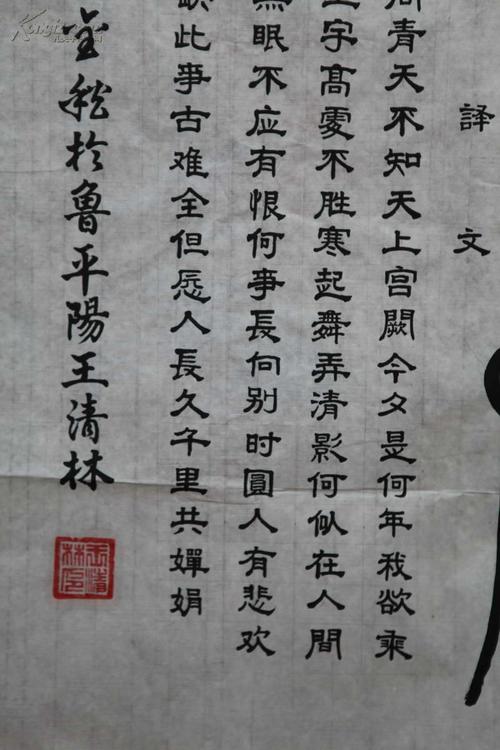 譯文
青天不知天上宫闕今夕是何年我欲乘
宇高處不胜寒起舞弄清影何似在人間
眠不应有恨何事長向别时圓人有悲欢
此事古难全但愿人長久千里共嬋娟
金秋於魯平陽王清林
王清林印